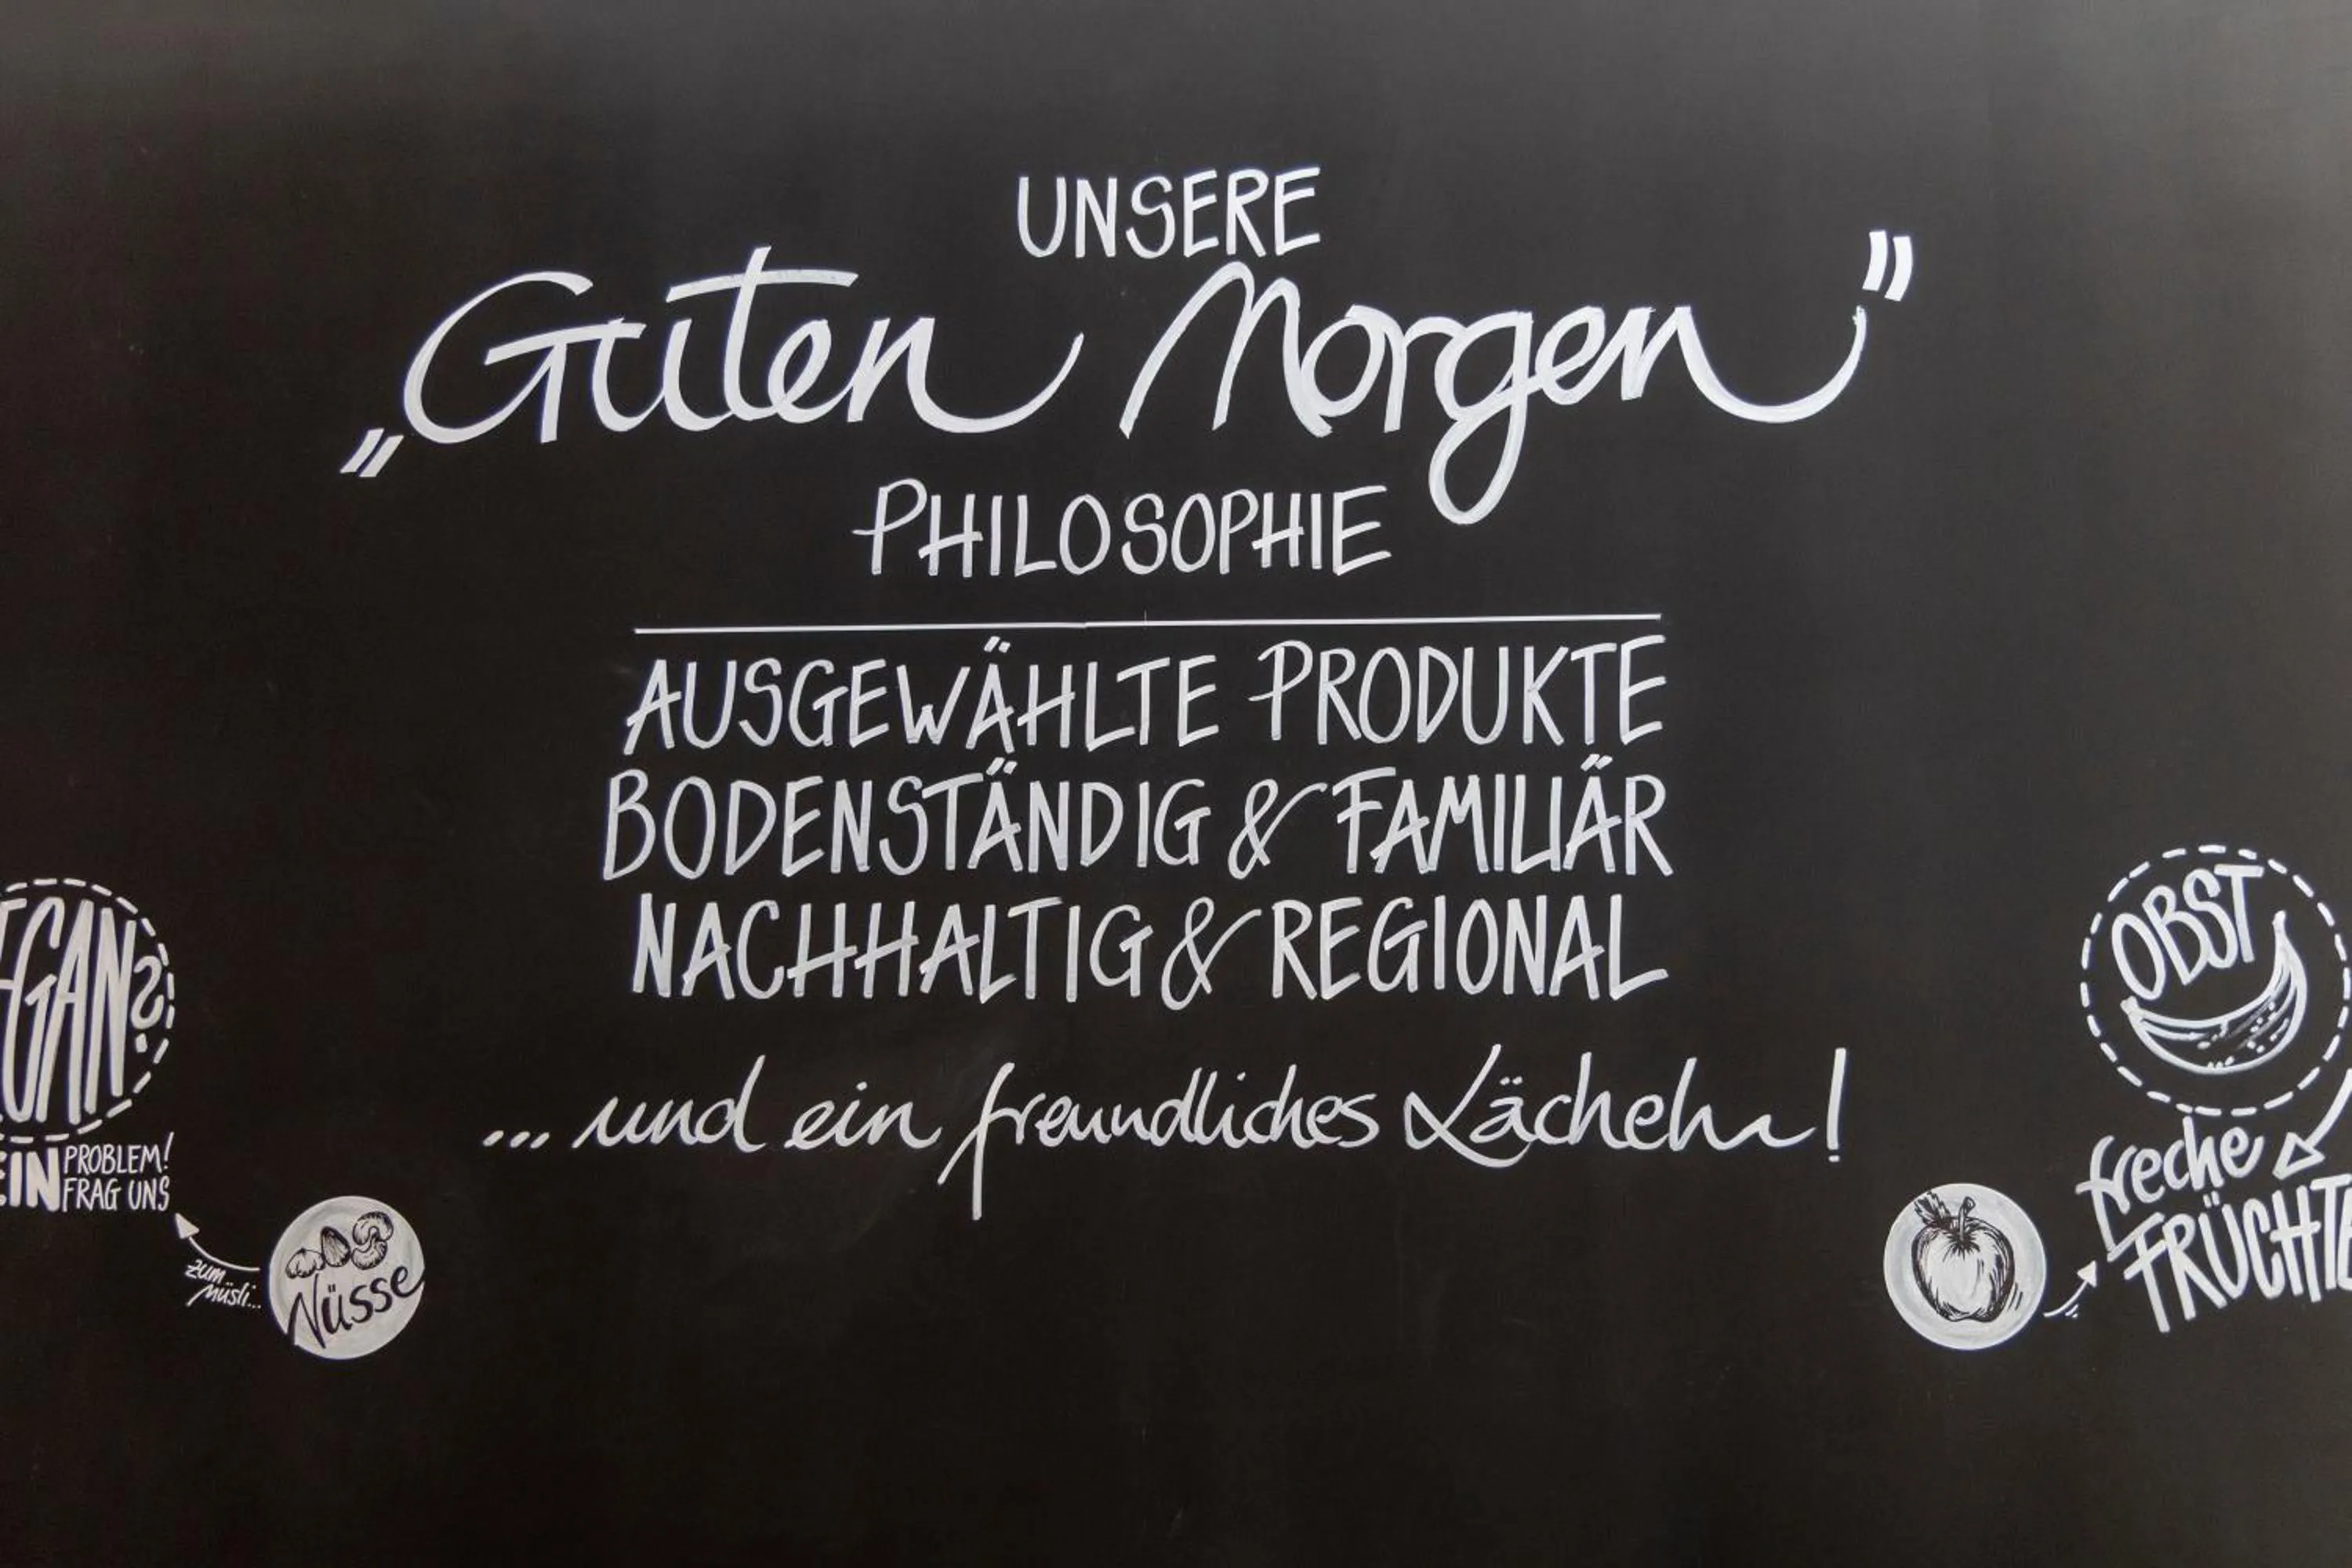 UNSERE
„Guten Morgen"
PHILOSOPHIE
AUSGEWÄHLTE PRODUKTE
BODENSTÄNDIG & FAMILIÄR
NACHHALTIG & REGIONAL
... und ein freundliches Lächeln!
EGAN?
EIN PROBLEM!
FRAG UNS
zum
Müsli...
Nüsse
OBST
freche
FRÜCHTE